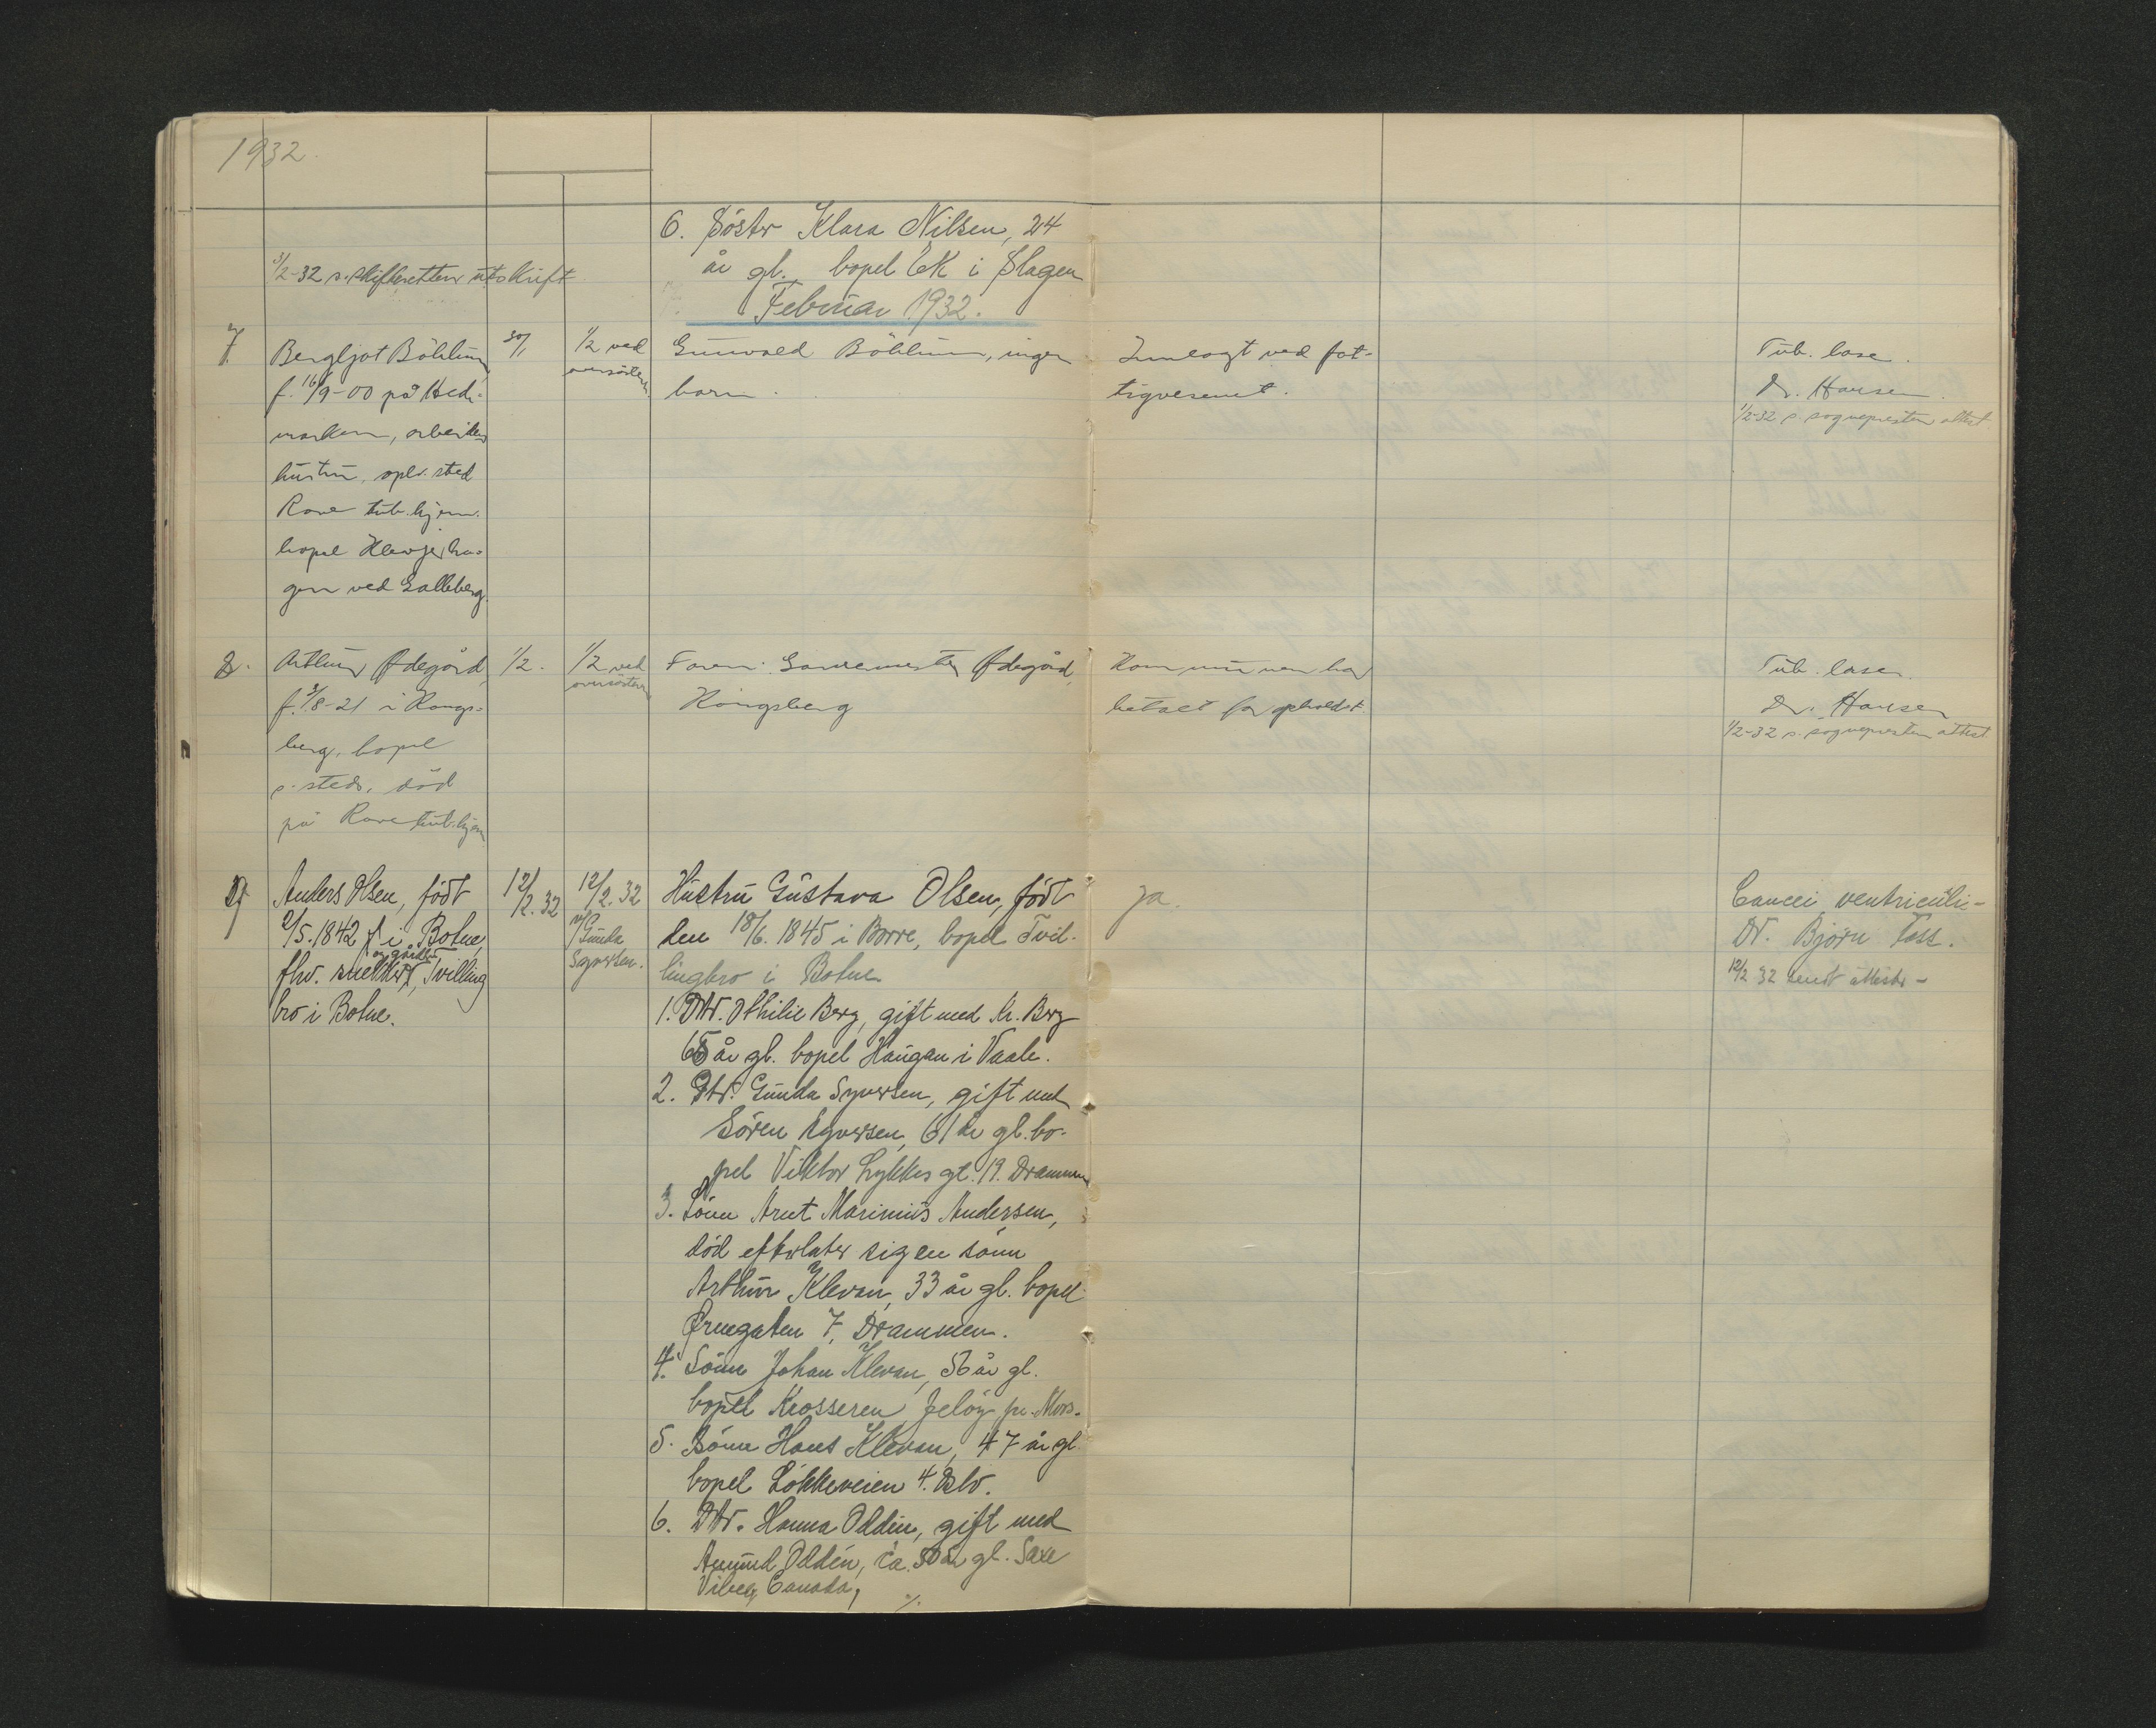 1932.
6. Söster Klara Nilsen, 24
år gl. bopel Ek i Slagen
1/2-32 s. skifteretten utskrift
Februar 1932.
7. Bergljot Böhlum
f. 16/9-00 på Hed-
marken, arbeider
hustru, oph. sted
Rove tub. hjem.
bopel
gen ved Galleberg.
30/1
1/2 ved
oversösteren
Gunvald Böhlum, ingen
barn.
Innlagt ved fat-
tigvesenet.
Tub. lase.
Dr. Hansen.
1/2-32 s. sogneprestens attest
8. Arthur Ödegård,
f. 3/8-21 i Kongs-
berg, bopel
s. steds, död
på Rove tub. hjem
1/2.
1/2 ved
oversösteren
Faren: Ödegård,
Kongsberg
Kommunen har
betalt for opholdet.
Tub. lase.
Dr. Hansen
1/2-32 s. sogneprestens attest
9 Anders Olsen, född
2/5.1842 i Botne,
og gårdbr.
fhv. snekker, Tvilling
bro i Botne.
12/2.32
12/2.32
v/
Gunda
Syversen.
Hustru Gustava Olsen, född
den 18/6. 1845 i Borre, bopel Tvil-
lingbro i Botne
1. Dtr. Othilie Berg, gift med Kr. Berg
65 år gl. bopel Haugan i Vaale.
2. Dtr. Gunda Syversen, gift med
Sören Syversen, 61 år gl. bo-
pel Viktor Lykkes gt. 19. Drammen
3. Sönn Arnt Marinius Andersen,
död efterlater sig en sönn
Arthur Klevan, 33 år gl. bopel
Ørnegaten 7, Drammen.
4. Sönn Johan Klevan, 56 år gl.
bopel Krosseren, Jelöy pr. Moss.
5. Sönn Hans Klevan, 47 år gl.
bopel Lökkeveien 4. Oslo.
6. Dtr. Hanna Oddén, gift med
Amund Oddén, ca. 50 år gl.
Canada,
%.
ja.
Cancer ventriculi-
Dr. Björn Foss.
12/2 32 sendt attester-